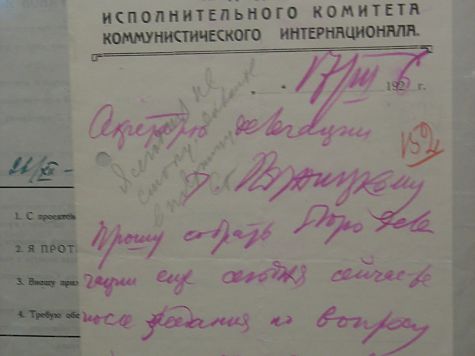 ИСПОЛНИТЕЛЬНОГО КОМИТЕТА
КОММУНИСТИЧЕСКОГО ИНТЕРНАЦИОНАЛА.
17/III 1926 г.
Секретарю делегации
т. Пятницкому
Прошу собрать Бюро Деле
гации еще сегодня сейчас же
после заседания по вопросу
1. С проектом
2. Я ПРОТ
3. Вношу при
4. Требую обс